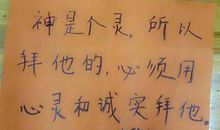 神是个灵，所以
拜他的，必须用
心灵和诚实拜他。